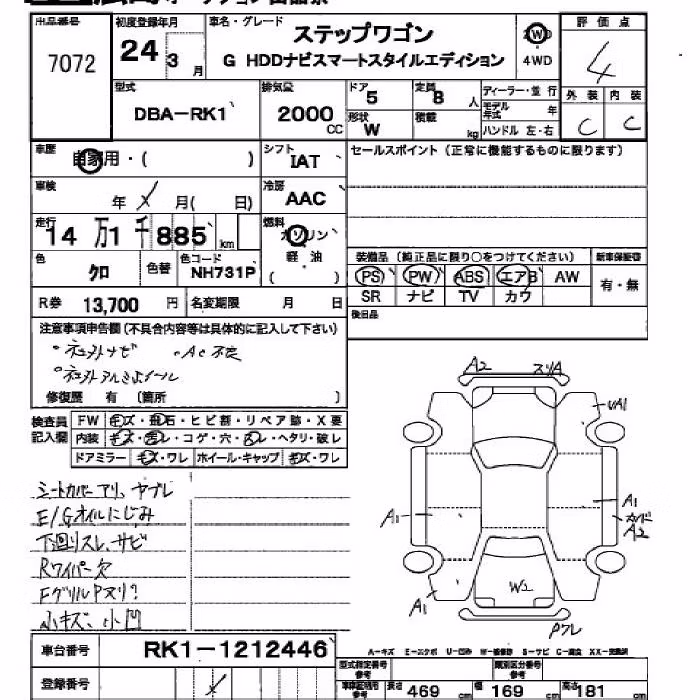 出品番号 初度登録年月 車名・グレード 評価点
7072 24 3月 ステップワゴン 4
G HDDナビスマートスタイルエディション W 4WD
型式 排気量 ドア 定員 ディーラー・並行 外装 内装
DBA-RK1 2000CC 5 8人 モデル年式 年 C C
形状 積載 W kg ハンドル 左・右
車歴 シフト セールスポイント (正常に機能するものに限ります)
自家用・( ) IAT
車検 冷房
年 / 月( 日) AAC
走行 燃料
14万1千885km ガソリン
色 色替 色コード 軽油 装備品 (純正品に限り○をつけてください) 新車保証書
クロ NH731P ( ) PS PW ABS エアB AW 有・無
R券 13,700円 名変期限 月 日 SR ナビ TV カワ
注意事項申告欄(不具合内容等は具体的に記入して下さい) 後日品
・ネジュガイナビ ・AC不良
修復歴 有 〔箇所 〕
検査員記入欄 FW キズ・飛石・ヒビ割・リペア跡・X要
内装 キズ・汚レ・コゲ・穴・スレ・ヘタリ・破レ
ドアミラー キズ・ワレ ホイール・キャップ キズ・ワレ
シートカバーアリ、ヤブレ
E/Gオイルにじみ
下廻リスレ、サビ
Rワイパー欠
小キズ、小凹
A2 スリA
UA1
A1 A1
A2
A1 W2
Pワレ
車台番号 RK1-1212446
A-キズ E-エクボ U-凹ミ W-補修跡 S-サビ C-腐食 XX-交換済
登録番号 / 型式指定番号 類別区分番号
長さ 469cm 幅 169cm 高さ 181cm